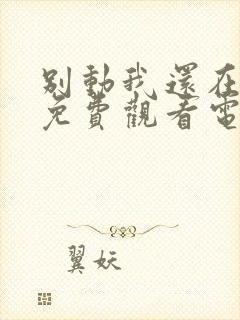 别動我還在
免費觀看電
翼妖